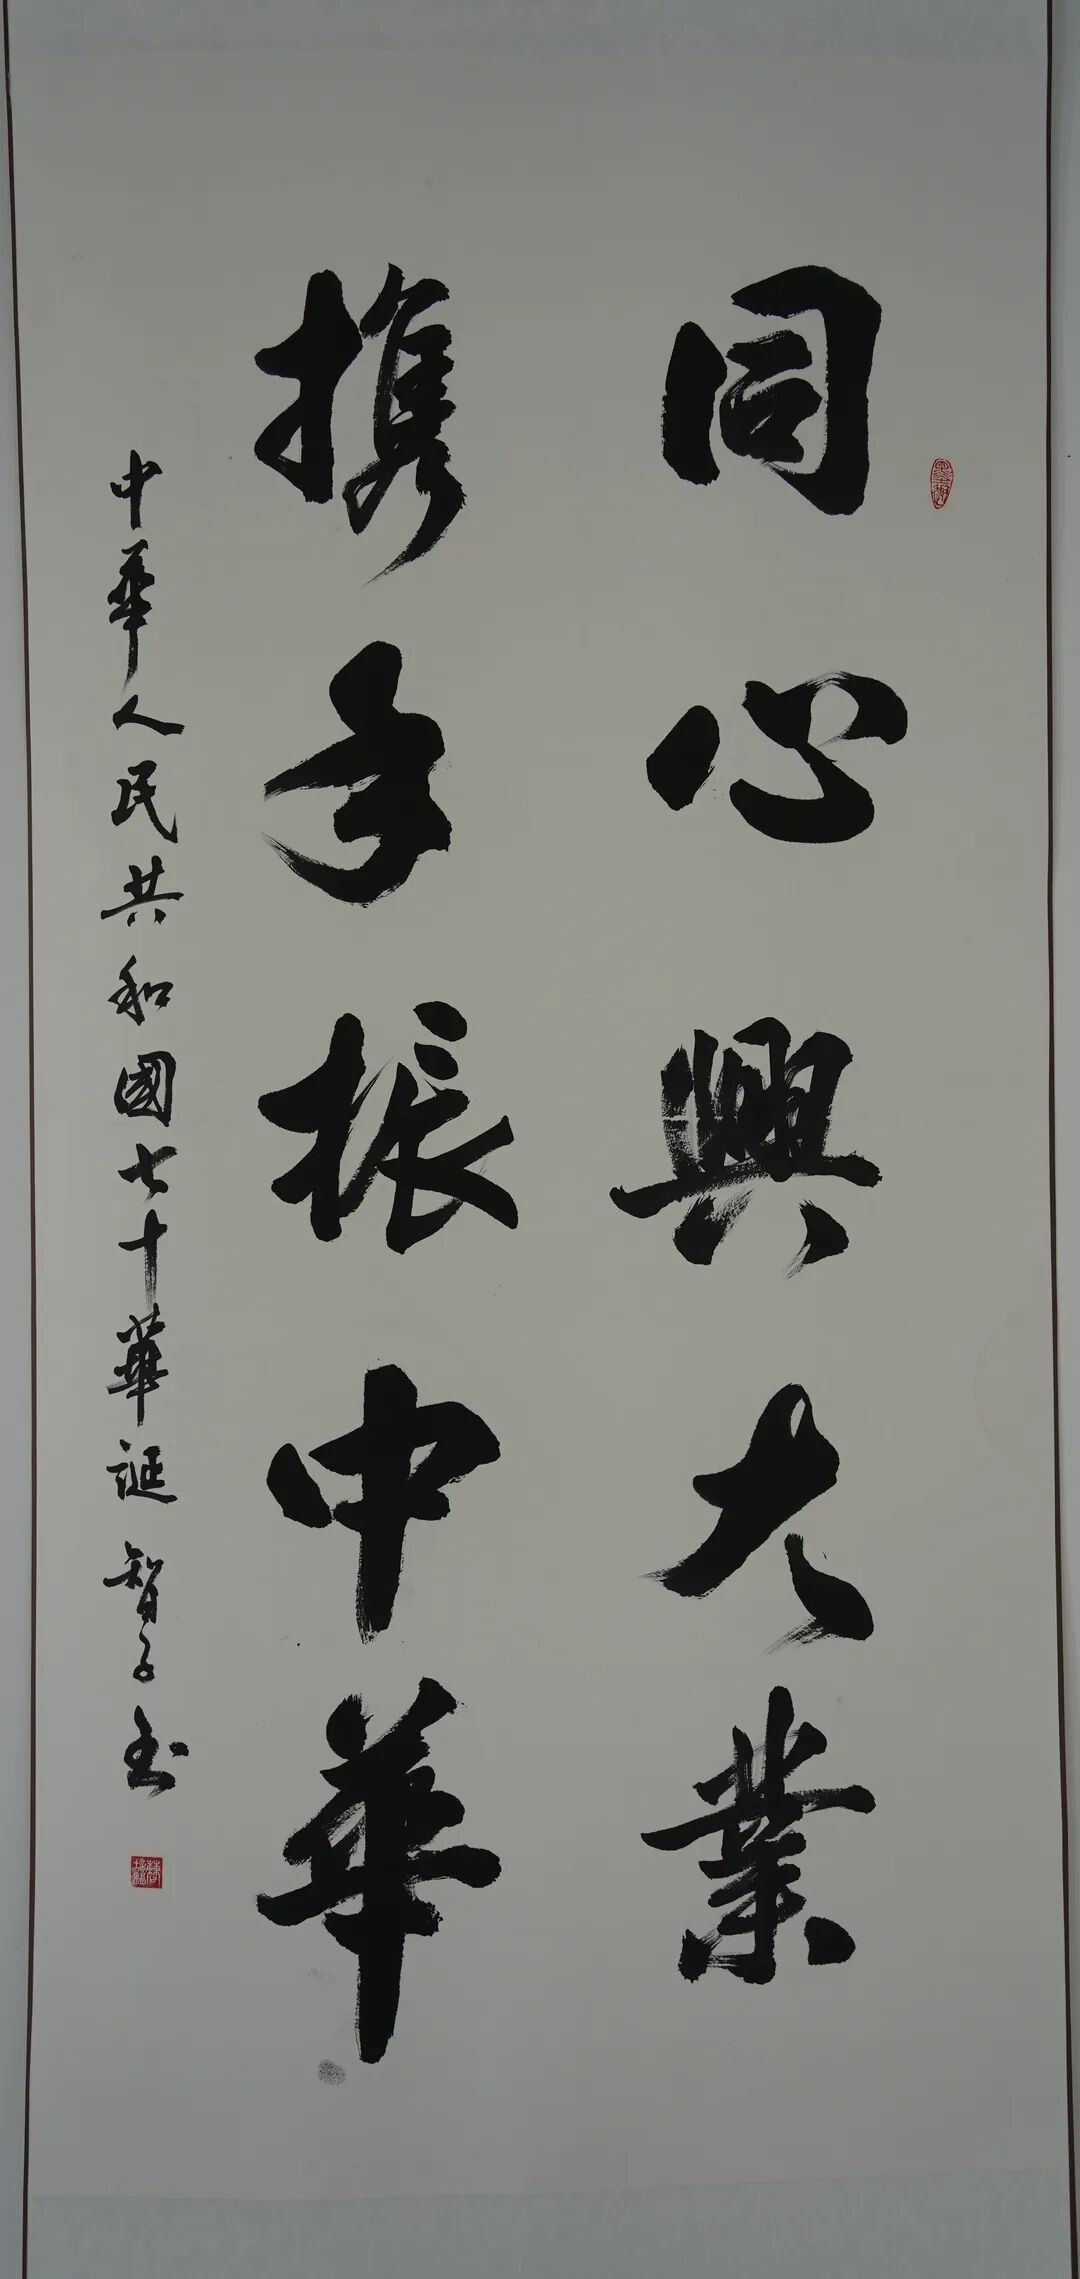 同心興大業
携手振中華
中華人民共和國七十華誕 智子书